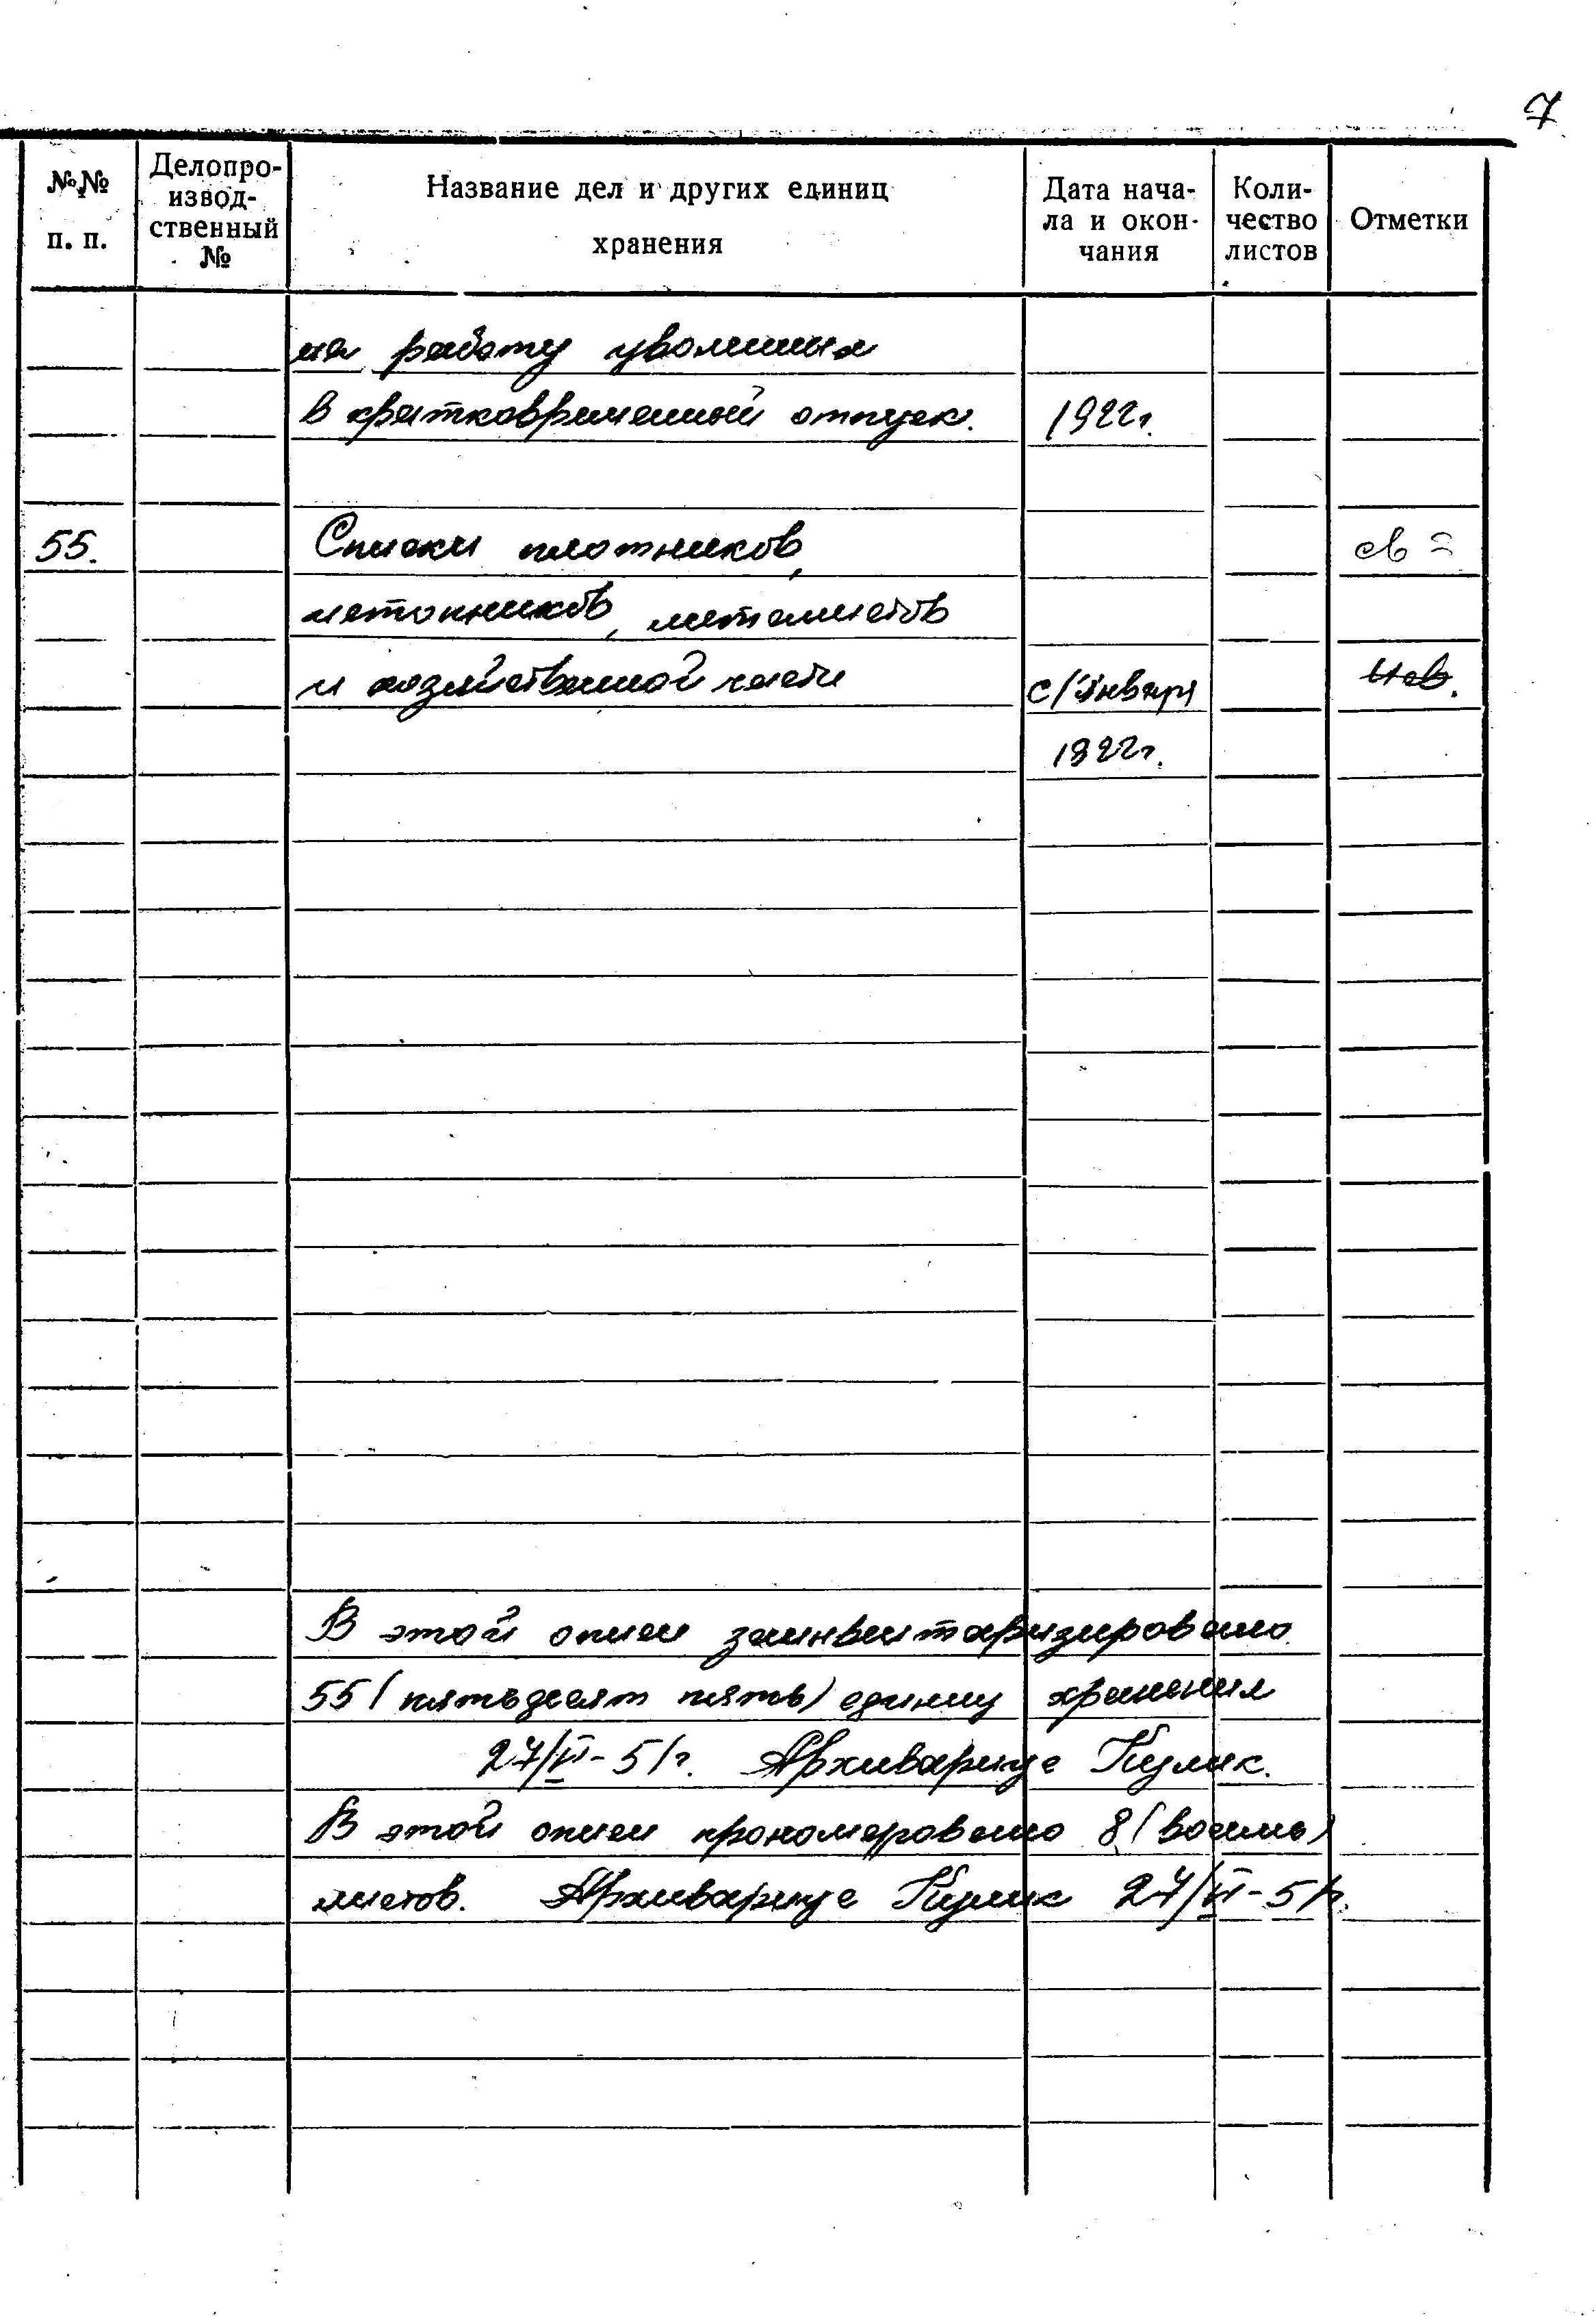 7
№№ п. п.
Делопро-
извод-
ственный
№
Название дел и других единиц
хранения
Дата нача-
ла и окон-
чания
Коли-
чество
листов
Отметки
на работу уволенных
в кратковременный отпуск. 1922г.
55. Списки плотников, св
истопников, металистов
и хозяйственной части с/января
1922г.
В этой описи заинвентаризировано
55 (пятьдесят пять) единиц хранения
27/VI-51г. Архивариус Кулик.
В этой описи прономеровано 8 (восемь)
листов. Архивариус Кулик 27/VI-51г.